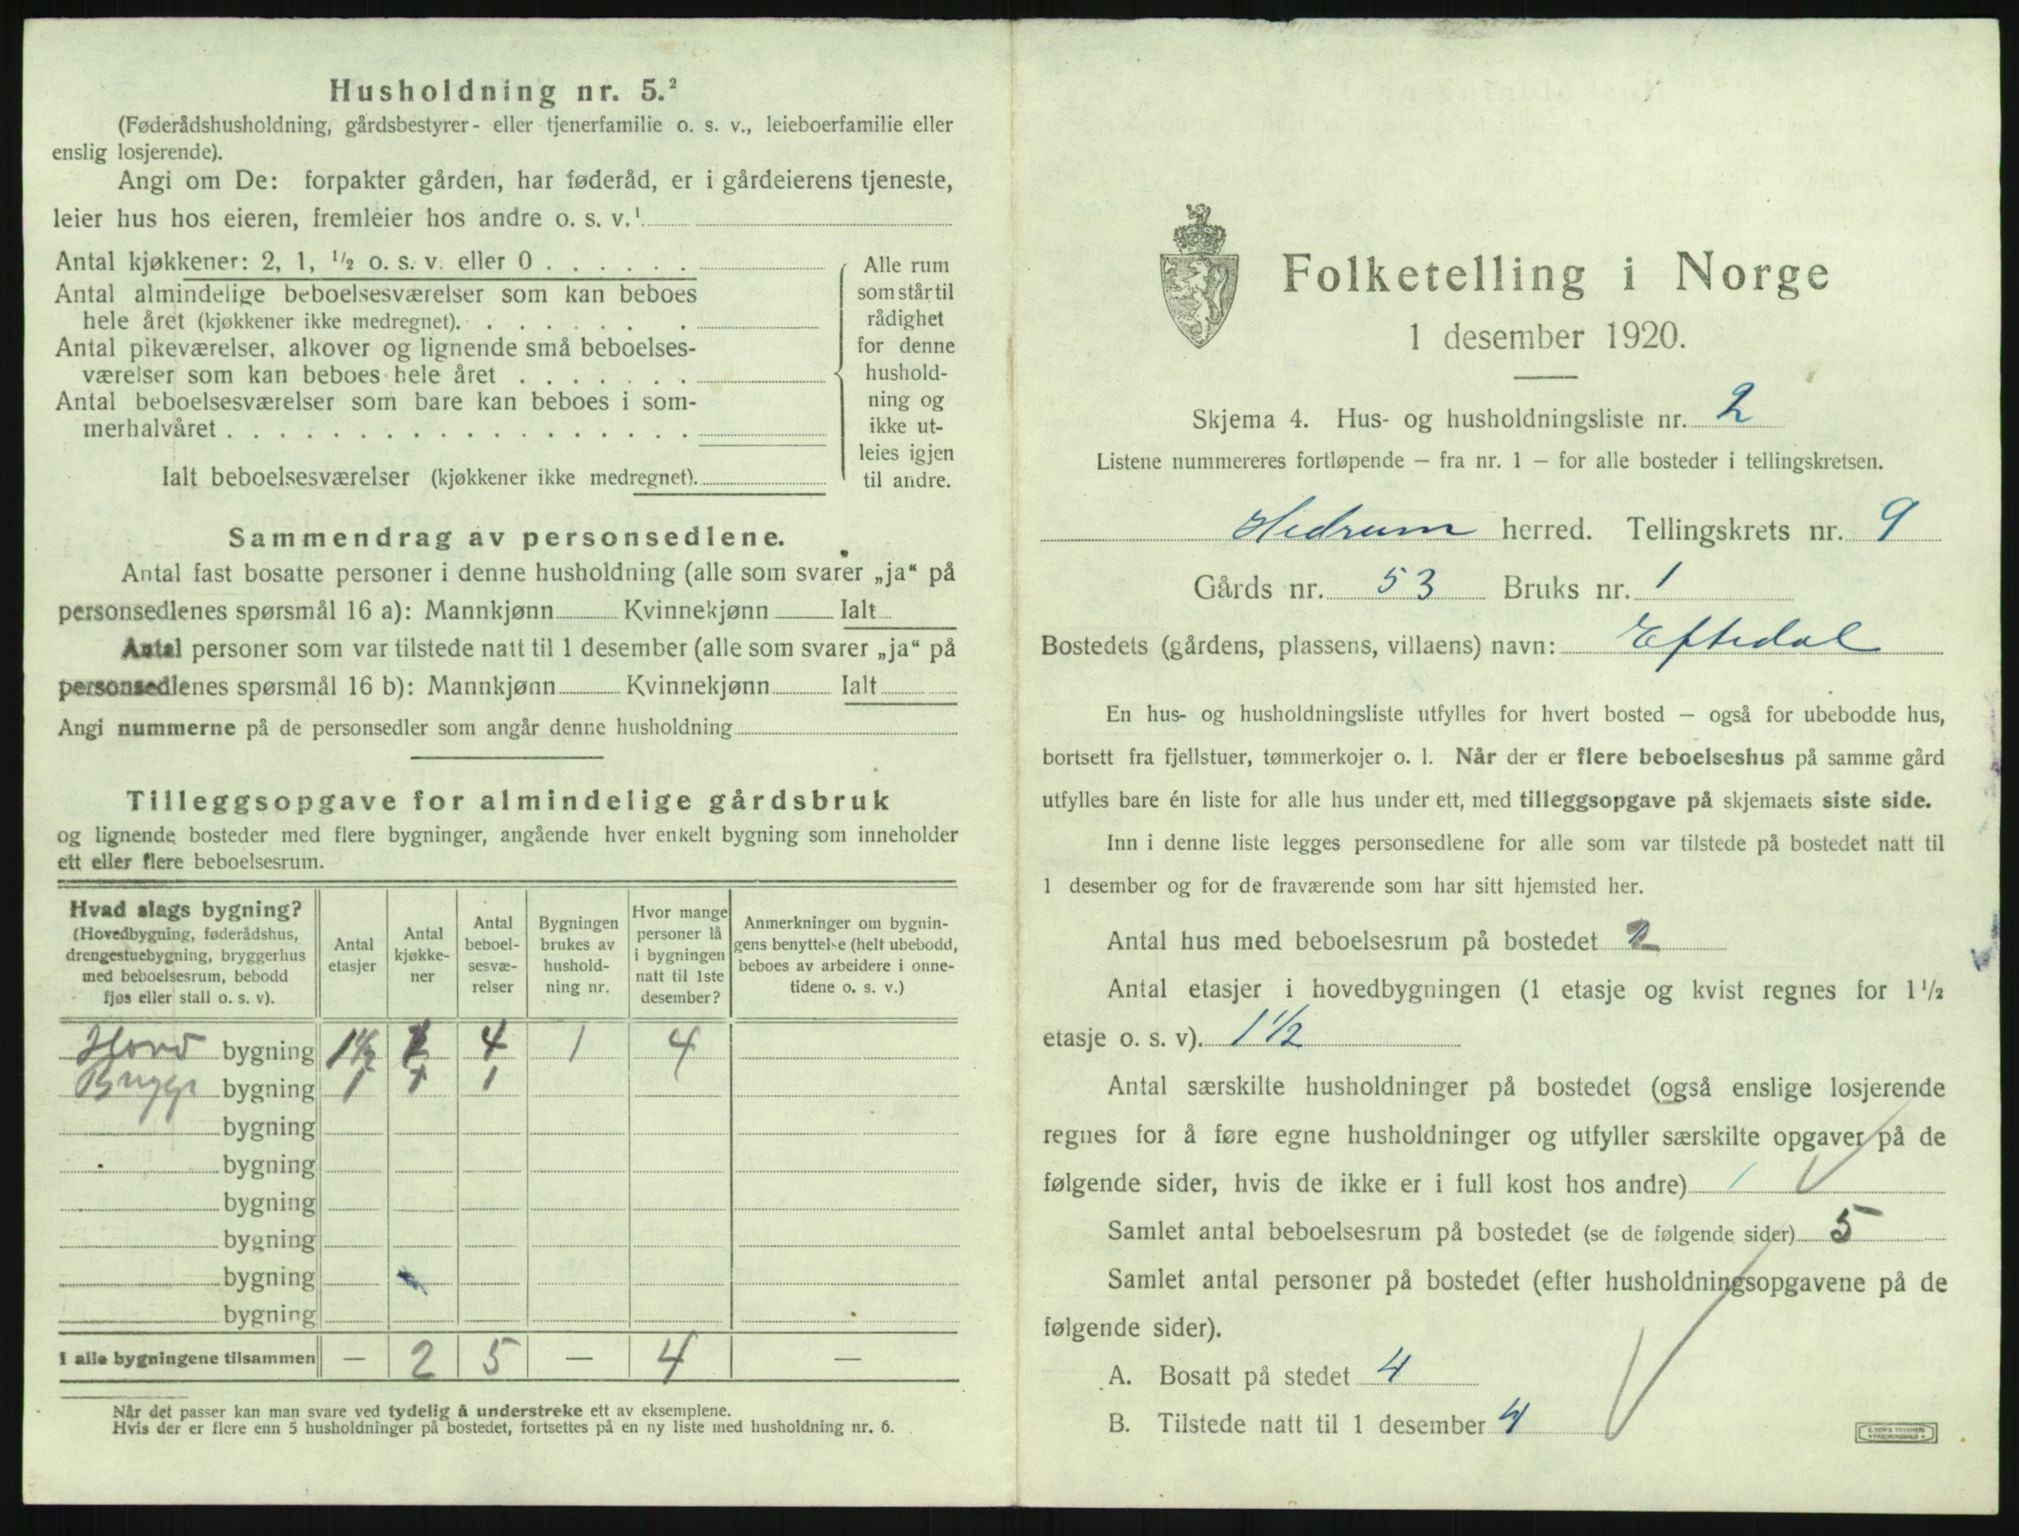 Husholdning nr. 5.²
(Føderådshusholdning, gårdsbestyrer- eller tjenerfamilie o. s. v., leieboerfamilie eller
enslig losjerende).
Angi om De: forpakter gården, har føderåd, er i gårdeierens tjeneste,
leier hus hos eieren, fremleier hos andre o. s. v.¹
Antal kjøkkener: 2, 1, ½ o. s. v. eller 0 . . . . . .
Antal almindelige beboelsesværelser som kan beboes
hele året (kjøkkener ikke medregnet). . . . . . . .
Antal pikeværelser, alkover og lignende små beboelses-
værelser som kan beboes hele året . . . . . . .
Antal beboelsesværelser som bare kan beboes i som-
merhalvåret . . . . . . . . . . . . . . . . . .
Ialt beboelsesværelser (kjøkkener ikke medregnet).
Alle rum
som står til
rådighet
for denne
hushold-
ning og
ikke ut-
leies igjen
til andre.
Sammendrag av personsedlene.
Antal fast bosatte personer i denne husholdning (alle som svarer „ja“ på
personsedlenes spørsmål 16 a): Mannkjønn Kvinnekjønn Ialt
Antal personer som var tilstede natt til 1 desember (alle som svarer „ja“ på
personsedlenes spørsmål 16 b): Mannkjønn Kvinnekjønn Ialt
Angi nummerne på de personsedler som angår denne husholdning
Tilleggsopgave for almindelige gårdsbruk
og lignende bosteder med flere bygninger, angående hver enkelt bygning som inneholder
ett eller flere beboelsesrum.
Hvad slags bygning?
(Hovedbygning, føderådshus,
drengestuebygning, bryggerhus
med beboelsesrum, bebodd
fjøs eller stall o. s. v).
Antal
etasjer
Antal
kjøkke-
ner
Antal
beboel-
sesvæ-
relser
Bygningen
brukes av
hushold-
ning nr.
Hvor mange
personer lå
i bygningen
natt til 1ste
desember?
Anmerkninger om bygnin-
gens benyttelse (helt ubebodd,
beboes av arbeidere i onne-
tidene o. s. v.)
Hovd bygning 1½ 4 1 4
Brygg bygning 1 1 1
bygning
bygning
bygning
bygning
bygning
bygning
I alle bygningene tilsammen — 2 5 — 4 —
Når det passer kan man svare ved tydelig å understreke ett av eksemplene.
Hvis der er flere enn 5 husholdninger på bostedet, fortsettes på en ny liste med husholdning nr. 6.
Folketelling i Norge
1 desember 1920.
Skjema 4. Hus- og husholdningsliste nr. 2
Listene nummereres fortløpende — fra nr. 1 — for alle bosteder i tellingskretsen.
Hedrum herred. Tellingskrets nr. 9
Gårds nr. 53 Bruks nr. 1
Bostedets (gårdens, plassens, villaens) navn: Eftedal
En hus- og husholdningsliste utfylles for hvert bosted — også for ubebodde hus,
bortsett fra fjellstuer, tømmerkojer o. l. Når der er flere beboelseshus på samme gård
utfylles bare én liste for alle hus under ett, med tilleggsopgave på skjemaets siste side.
Inn i denne liste legges personsedlene for alle som var tilstede på bostedet natt til
1 desember og for de fraværende som har sitt hjemsted her.
Antal hus med beboelsesrum på bostedet 2
Antal etasjer i hovedbygningen (1 etasje og kvist regnes for 1½
etasje o. s. v). 1½
Antal særskilte husholdninger på bostedet (også enslige losjerende
regnes for å føre egne husholdninger og utfyller særskilte opgaver på de
følgende sider, hvis de ikke er i full kost hos andre) 1
Samlet antal beboelsesrum på bostedet (se de følgende sider) 5
Samlet antal personer på bostedet (efter husholdningsopgavene på de
følgende sider).
A. Bosatt på stedet 4
B. Tilstede natt til 1 desember 4